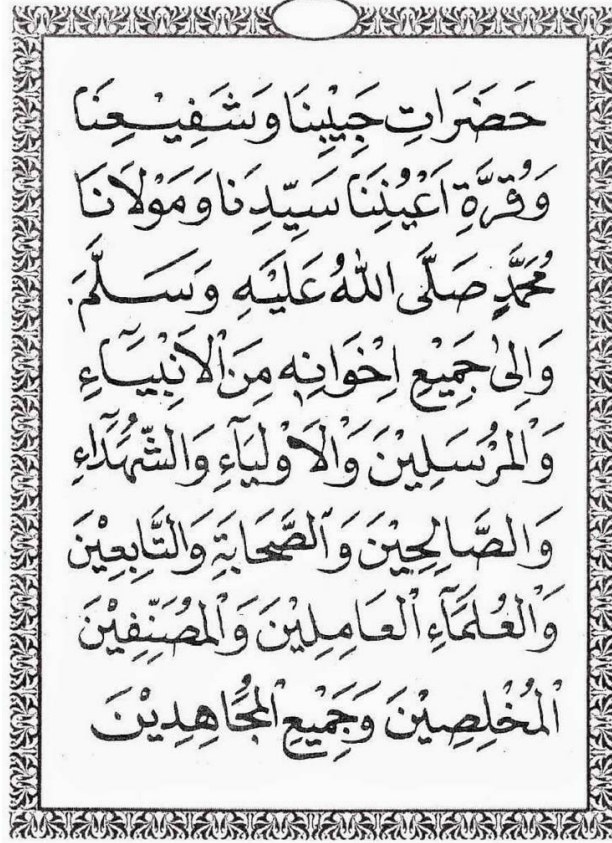 حَضَرَاتِ حَبِيْبِنَا وَشَفِيْعِنَا
وَقُرَّةِ اَعْيُنِنَا سَيِّدِنَا وَمَوْلَانَا
مُحَمَّدٍ صَلَّى اللهُ عَلَيْهِ وَسَلَّمَ.
وَاِلىٰ جَمِيْعِ اِخْوَانِهِ مِنَ الْاَنْبِيَآءِ
وَالْمُرْسَلِيْنَ وَالْاَوْلِيَآءِ وَالشُّهَدَآءِ
وَالصَّالِحِيْنَ وَالصَّحَابَةِ وَالتَّابِعِيْنَ
وَالْعُلَمَآءِ الْعَامِلِيْنَ وَالْمُصَنِّفِيْنَ
الْمُخْلِصِيْنَ وَجَمِيْعِ الْمُجَاهِدِيْنَ